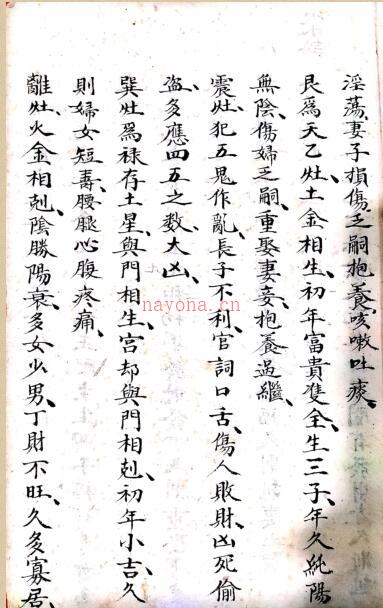 淫荡、妻子損傷乏嗣抱養、咳嗽吐痰、
艮為天乙灶、土金相生、初年富貴雙全、生三子、年久純陽
無陰、傷婦乏嗣、重娶妻妾、抱養過繼、
震灶、犯五鬼作亂、長子不利、官詞口舌、傷人敗財、凶死偷
盗、多應四五之数大凶、
巽灶為禄存土星、與門相生、宫却與門相剋、初年小吉、久
則婦女短壽、腰腿心腹疼痛、
離灶、火金相剋、陰勝陽衰、多女少男、丁財不旺、久多寡居、
nayona.cn